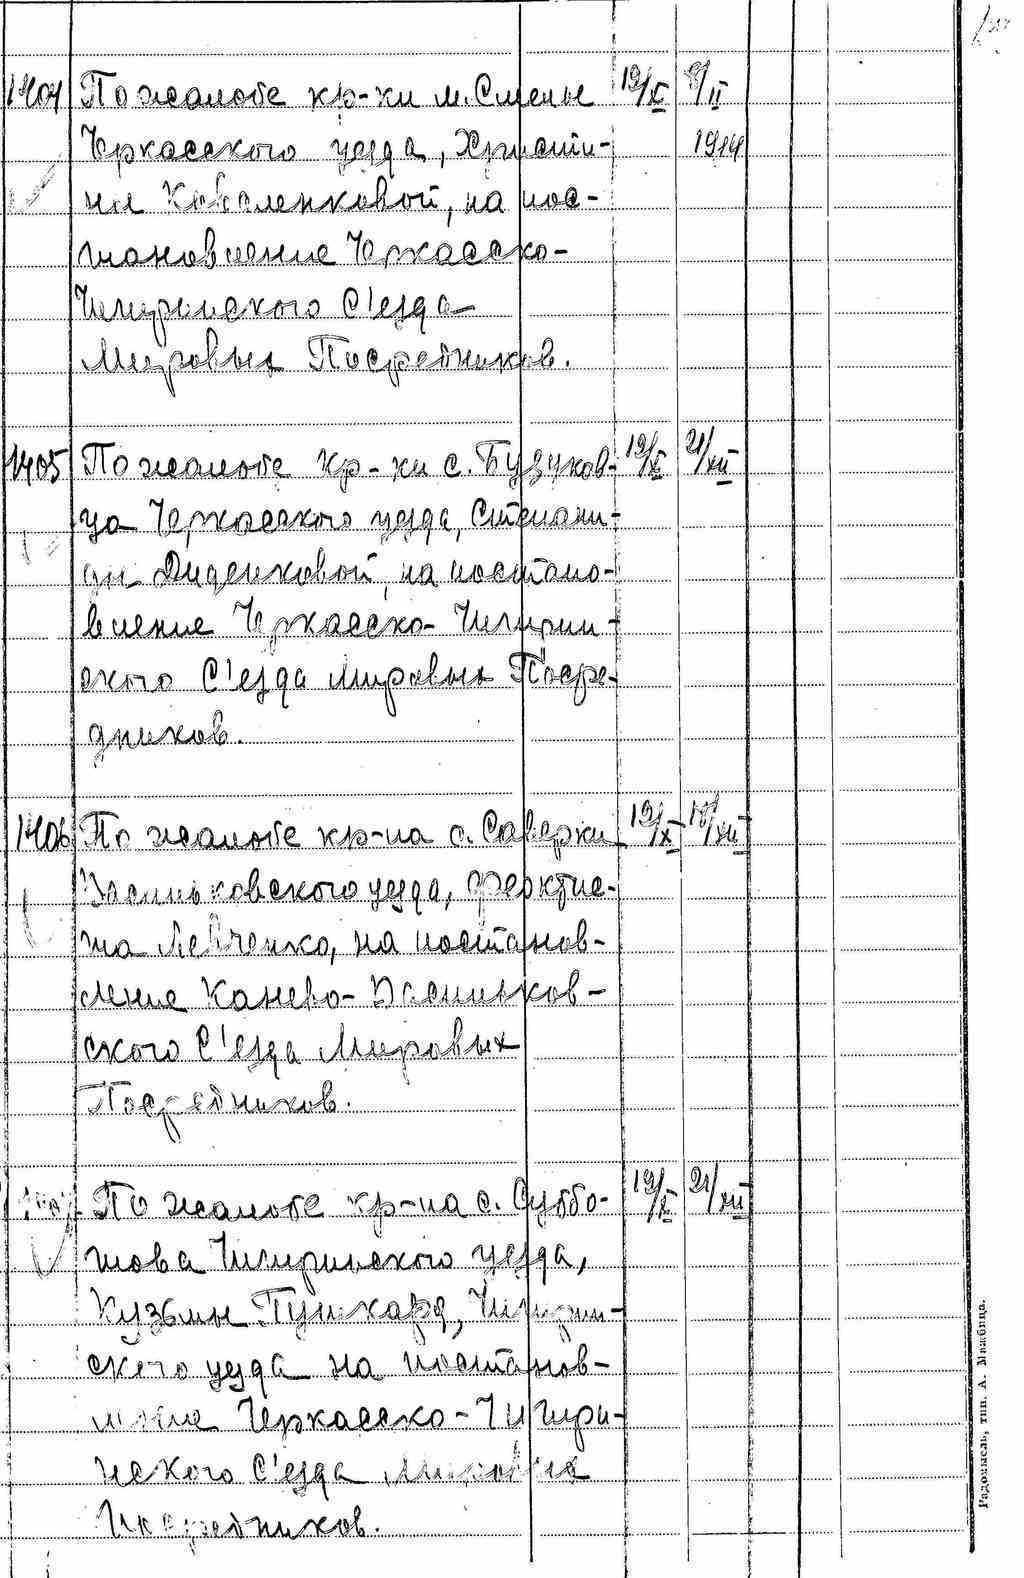 1404 По жалобе кр-ки м. Смелы 19/X 9/II
Черкасского уезда, Христи- 1914
ны Коваленковой, на пос-
тановление Черкасско-
Чигиринского С'езда
Мировых Посредников.
1405 По жалобе кр-ки с. Будуков- 19/X 21/XII
ца Черкасского уезда, Степани-
ды Диденковой, на постано-
вление Черкасско-Чигирин-
ского С'езда Мировых Посре-
дников.
1406 По жалобе кр-на с. Саверки 19/X 18/XII
Васильковского уезда, Феоктис-
та Левченко, на постанов-
ление Канево-Васильков-
ского С'езда Мировых
Посредников.
По жалобе кр-на с. Суббо- 19/X 21/XII
това Чигиринского уезда,
Кузьмы Пушкаря, Чигирин-
ского уезда на постанов-
ление Черкасско-Чигири-
нского С'езда Мировых
Посредников.
Радомысль, тип. А.